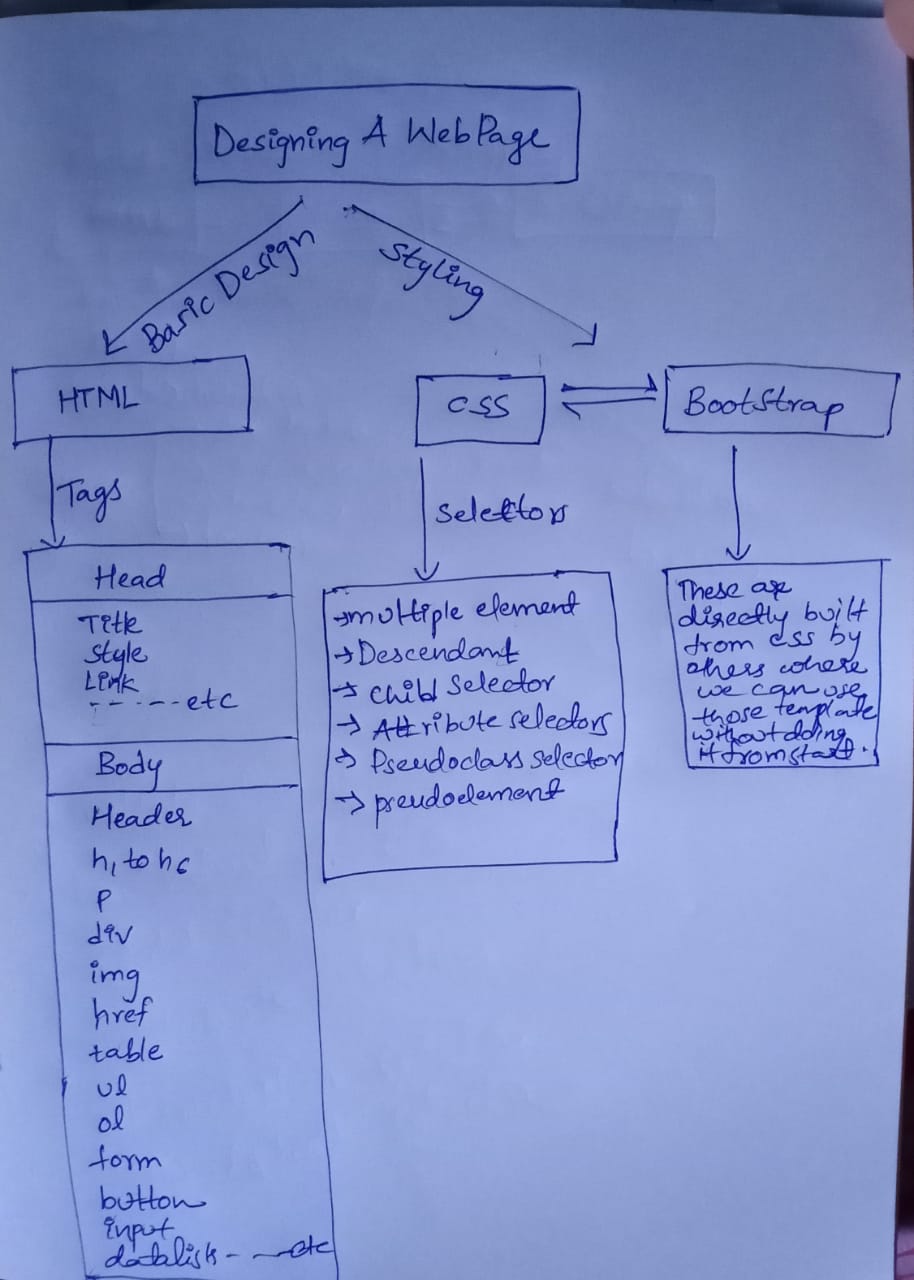 Designing A WebPage
Basic Design
Styling
HTML
CSS
BootStrap
Tags
Selettors
Head
Title
Style
Link
-- -- -- etc
Body
Header
h1 to h6
p
div
img
href
table
ul
ol
form
button
input
datalist - -- etc
→ multiple element
→ Descendant
→ Child Selector
→ Attribute selectors
→ Pseudoclass selector
→ pseudoelement
These are
directly built
from css by
others where
we can use
those template
without doing
it from start.